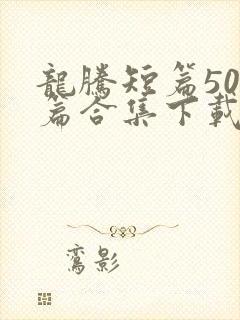 龍騰短篇50
篇合集下載
鸞影